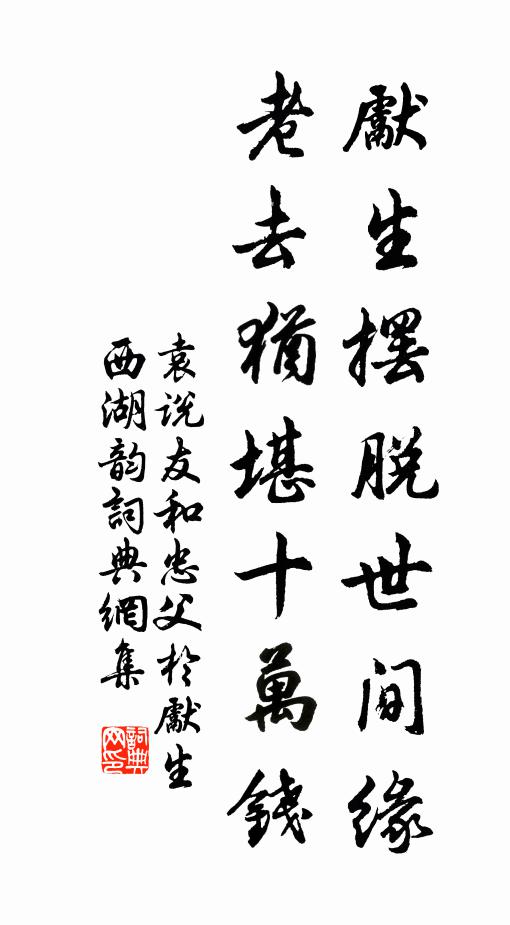 獻生擺脫世間緣
老去猶堪十萬錢
袁说友和忠父於獻生
西湖韵詞典網集
詞典
网印